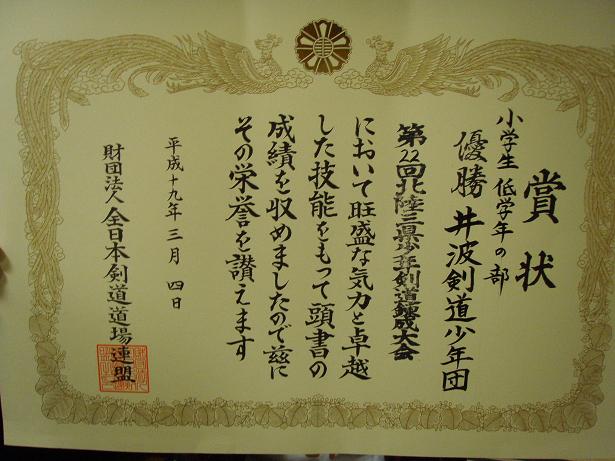 賞状
小学生 低学年の部
優勝 井波剣道少年団
第22回北陸三県少年剣道錬成大会
において旺盛な気力と卓越
した技能をもって頭書の
成績を収めましたので茲に
その栄誉を讃えます
平成十九年三月四日
財団法人 全日本剣道道場連盟